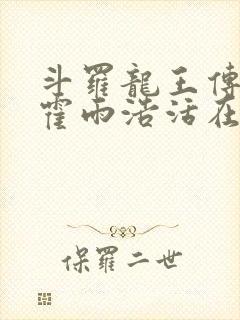 斗羅龍王傳
霍雨浩活在
保羅二世